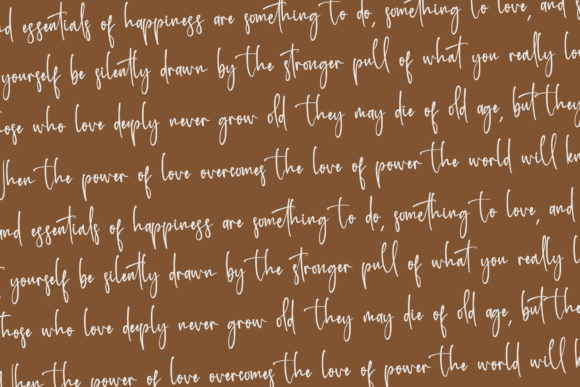 nd essentials of happiness are something to do, something to love, and
yourself be silently drawn by the stronger pull of what you really lo
hose who love deeply never grow old they may die of old age, but they
hen the power of love overcomes the love of power the world will kn
and essentials of happiness are something to do, something to love, and
yourself be silently drawn by the stronger pull of what you really l
hose who love deeply never grow old they may die of old age, but the
hen the power of love overcomes the love of power the world will k